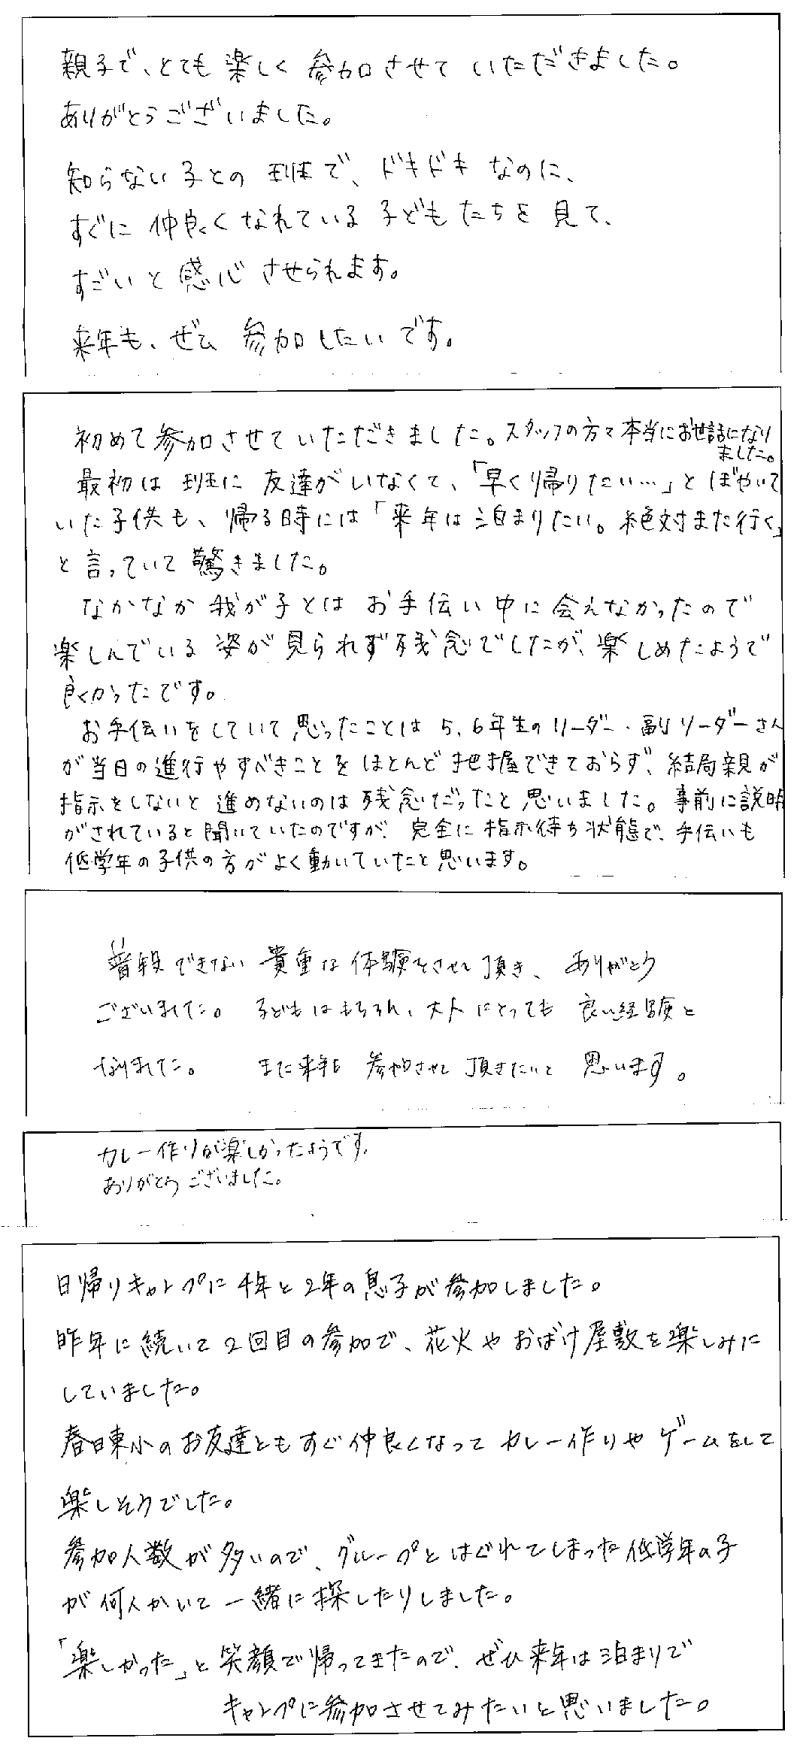 親子で、とても楽しく参加させていただきました。
ありがとうございました。
知らない子との班で、ドキドキなのに、
すぐに仲良くなれている子どもたちを見て、
すごいと感心させられます。
来年も、ぜひ参加したいです。
初めて参加させていただきました。スタッフの方々本当にお世話になり
ました。
最初は班に友達がいなくて、「早く帰りたい…」とぼやいて
いた子供も、帰る時には「来年は泊まりたい。絶対また行く」
と言っていて驚きました。
なかなか我が子とはお手伝い中に会えなかったので
楽しんでいる姿が見られず残念でしたが、楽しめたようで
良かったです。
お手伝いをしていて思ったことは5,6年生のリーダー・副リーダーさん
が当日の進行やすべきことをほとんど把握できておらず、結局親が
指示をしないと進めないのは残念だったと思いました。事前に説明
がされていると聞いていたのですが、完全に指示待ち状態で、手伝いも
低学年の子供の方がよく動いていたと思います。
普段できない貴重な体験をさせて頂き、ありがとう
ございました。子どもはもちろん、大人にとっても良い経験と
なりました。また来年も参加させて頂きたいと思います。
カレー作りが楽しかったようです。
ありがとうございました。
日帰りキャンプに4年と2年の息子が参加しました。
昨年に続いて2回目の参加で、花火やおばけ屋敷を楽しみに
していました。
春日東小のお友達ともすぐ仲良くなってカレー作りやゲームをして
楽しそうでした。
参加人数が多いので、グループとはぐれてしまった低学年の子
が何人かいて一緒に探したりしました。
「楽しかった」と笑顔で帰ってきたので、ぜひ来年は泊まりで
キャンプに参加させてみたいと思いました。